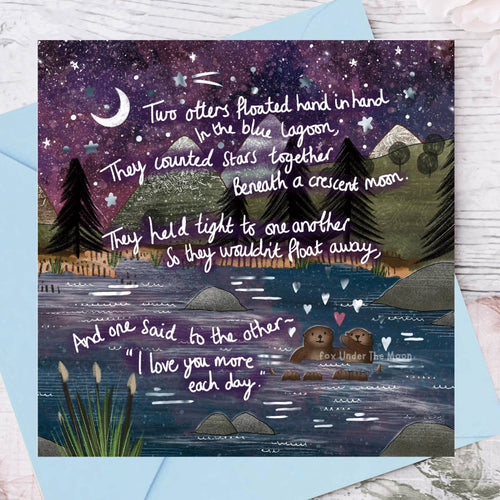 Two otters floated hand in hand
In the blue lagoon,
They counted stars together
Beneath a crescent moon.
They held tight to one another
So they wouldn't float away,
And one said to the other~
"I love you more
each day."
Fox Under The Moon